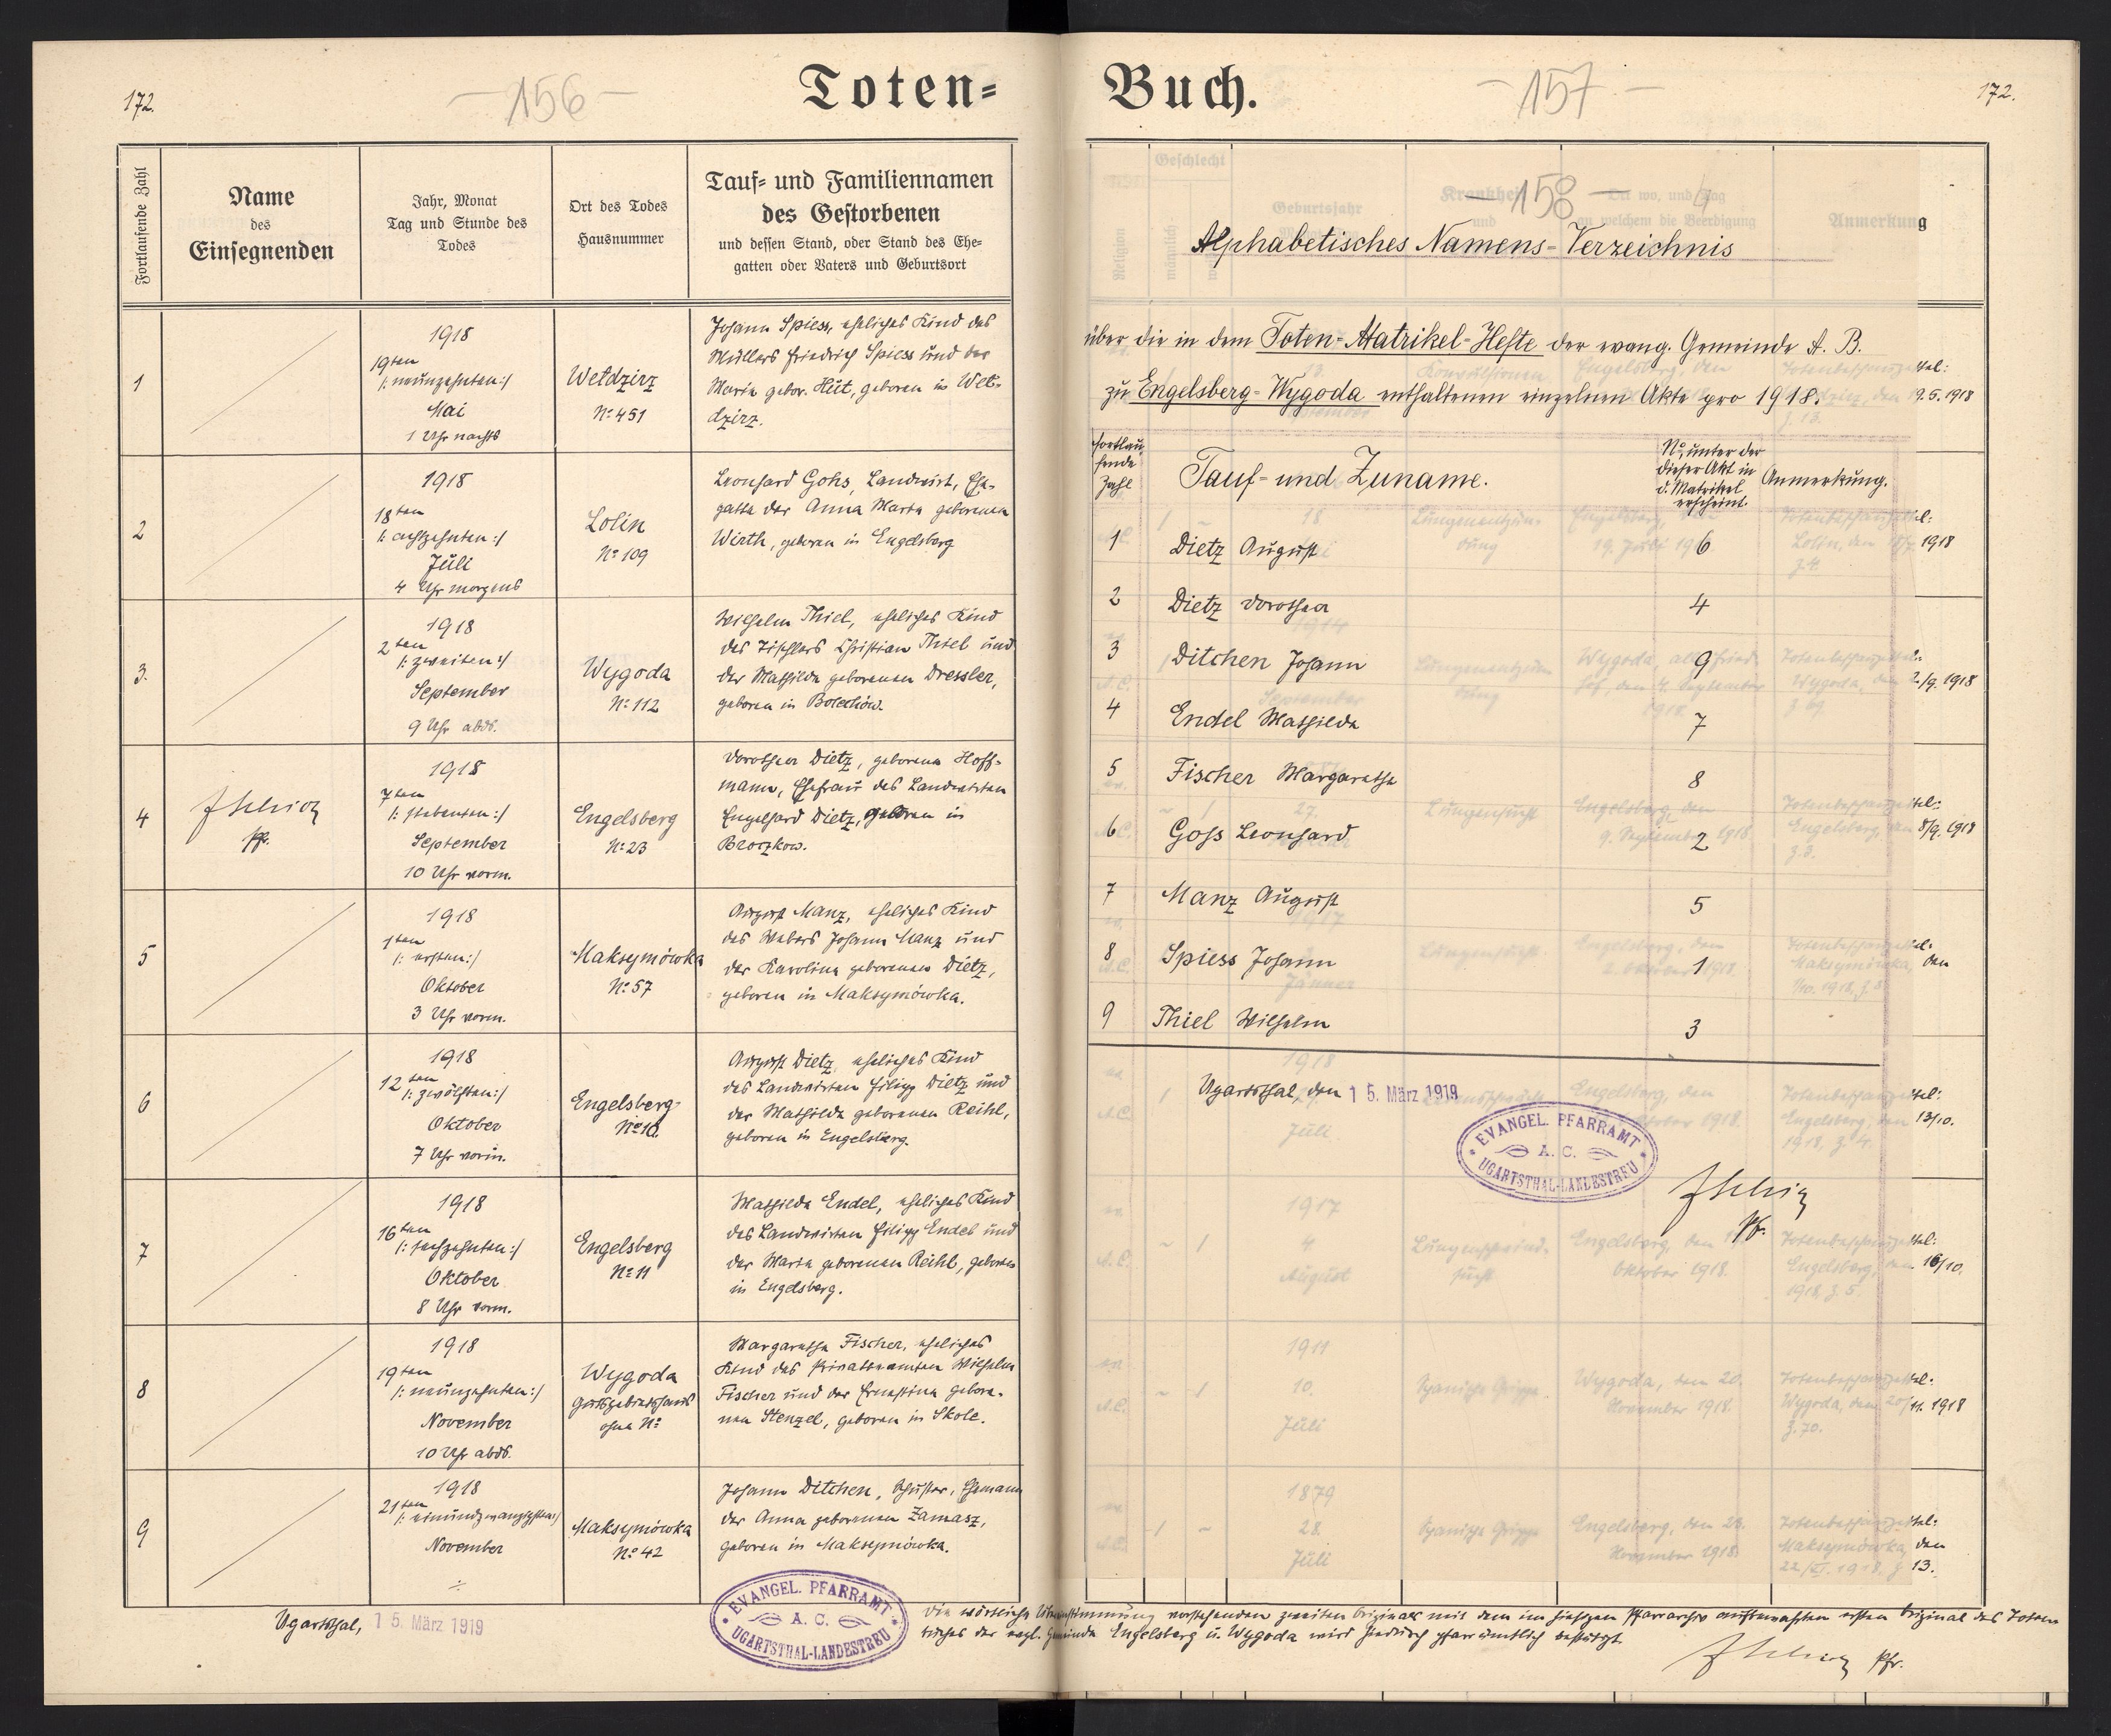 172.
— 156 —
Toten=
Fortlaufende Zahl
Name
des
Einsegnenden
Jahr, Monat
Tag und Stunde des
Todes
Ort des Todes
Hausnummer
Tauf= und Familiennamen
des Gestorbenen
und dessen Stand, oder Stand des Ehe=
gatten oder Vaters und Geburtsort
1
1918
19ten
/: neunzehnten :/
Mai
1 Uhr nachts
Weldzirz
No 451
Johann Spiess, eheliches Kind des
Müllers Friedrich Spiess und der
Maria gebor. Hüt, geboren in Wel-
dzirz.
2
1918
18ten
/: achtzehnten :/
Juli
4 Uhr morgens
Lolin
No 109
Leonhard Gohs, Landwirt, Ehe-
gatte der Anna Maria geborenen
Wirth, geboren in Engelsberg
3.
1918
2ten
/: zweiten :/
September
9 Uhr abds.
Wygoda
No 112
Wilhelm Thiel, eheliches Kind
des Tischlers Christian Thiel und
der Mathilde geborenen Dressler,
geboren in Bolechów.
4
Pf.
1918
7ten
/: siebenten :/
September
10 Uhr vorm.
Engelsberg
No 23
Dorothea Dietz, geborene Hoff-
mann, Ehefrau des Landwirten
Engelhard Dietz, geboren in
Broczkow.
5
1918
1ten
/: ersten :/
Oktober
3 Uhr vorm.
Maksymówka
No 57
August Manz, eheliches Kind
des Webers Johann Manz und
der Karolina geborenen Dietz,
geboren in Maksymówka.
6
1918
12ten
/: zwölften :/
Oktober
7 Uhr vorm.
Engelsberg
No 10.
August Dietz, eheliches Kind
des Landwirten Filipp Dietz und
der Mathilde geborenen Reihl,
geboren in Engelsberg.
7
1918
16ten
/: sechzehnten :/
Oktober
8 Uhr vorm.
Engelsberg
No 11
Mathilde Endel, eheliches Kind
des Landwirten Filipp Endel und
der Maria geborenen Reihl, geboren
in Engelsberg.
8
1918
19ten
/: neunzehnten :/
November
10 Uhr abds.
Wygoda
Gutsgebietshaus
ohne No
Margaretha Fischer, eheliches
Kind des Privatbeamten Wilhelm
Fischer und der Ernestina gebore-
nen Stenzel, geboren in Skole.
9
1918
21ten
/: einundzwanzigsten :/
November
÷
Maksymówka
No 42
Johann Ditchen, Schuster, Ehemann
der Anna geborenen Zamasz,
geboren in Maksymówka.
Ugartsthal, 15. März 1919
EVANGEL. PFARRAMT
A. C.
UGARTSTHAL-LANDESTREU
Buch.
— 157 —
172.
— 158 —
Alphabetisches Namens-Verzeichnis
über die in dem Toten-Matrikel-Hefte der evang. Gemeinde A. B.
zu Engelsberg-Wygoda enthaltenen einzelnen Akte pro 1918.
Fortlau-
fende
Zahl
Tauf- und Zuname.
No, unter der
dieser Akt in
d. Matrikel
erscheint.
Anmerkung.
1 Dietz August 6
2 Dietz Dorothea 4
3 Ditchen Johann 9
4 Endel Mathilde 7
5 Fischer Margaretha 8
6 Gohs Leonhard 2
7 Manz August 5
8 Spiess Johann 1
9 Thiel Wilhelm 3
Ugartsthal, den 15. März 1919
EVANGEL. PFARRAMT
A. C.
UGARTSTHAL-LANDESTREU
Pfr.
19.5.1918
1918
2./9. 1918
8/9. 1918
den
13/10.
16/10.
11. 1918
den
13.
Die wörtliche Übereinstimmung vorstehenden zweiten Originals mit dem im hiesigen Pfarrarchiv aufbewahrten ersten Original des Toten-
buches der evgl. Gemeinde Engelsberg u. Wygoda wird hiedurch pfarrämtlich bestätigt
Pfr.